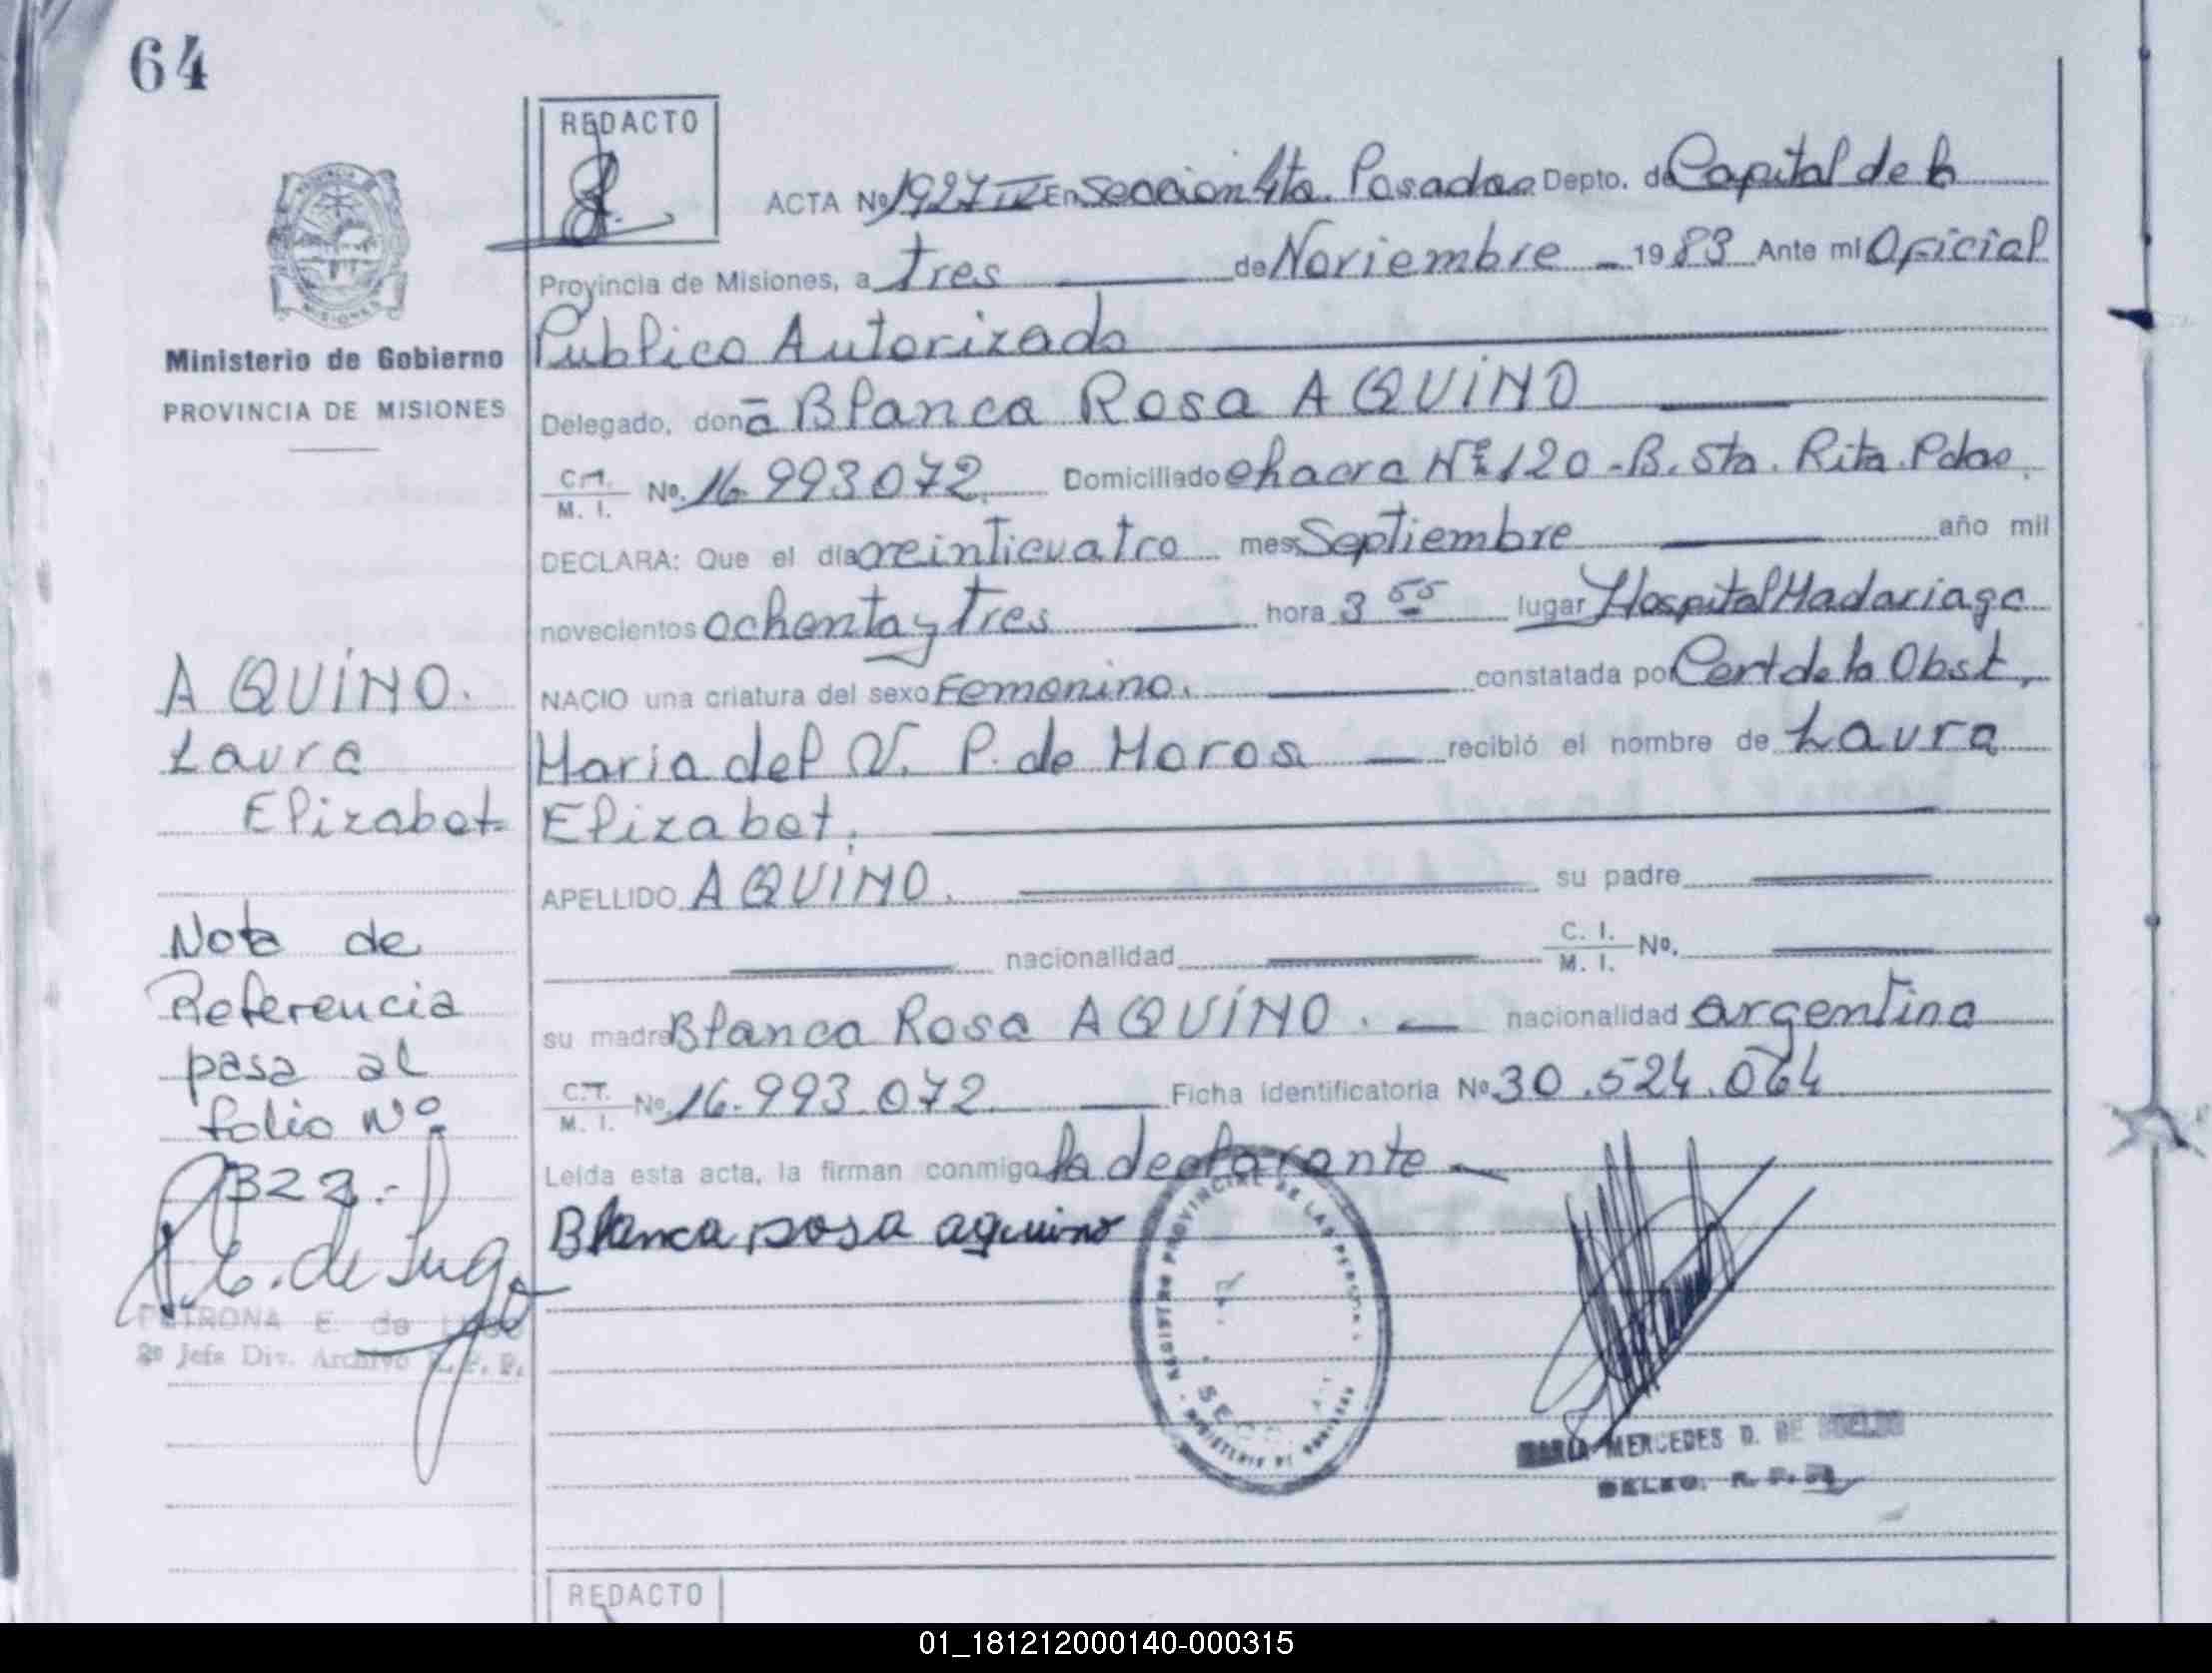 64
REDACTO
ACTA Nº 1927 IV En Seccion 4ta. Posadas Depto. de Capital de la
Provincia de Misiones, a tres de Noviembre 1983 Ante mi Oficial
Publico Autorizado
Delegado, don a Blanca Rosa AQUINO
M. I. Nº. 16.993072. Domiciliado chacra Nº 120 - B. Sta. Rita. Pdas.
DECLARA: Que el día veinticuatro mes Septiembre año mil
novecientos ochenta y tres hora 3 55 lugar Hospital Madariaga
NACIO una criatura del sexo Femenino. constatada por Cert de la Obst,
Maria del V. P. de Moros recibió el nombre de Laura
Elizabet.
APELLIDO AQUINO. su padre
nacionalidad C. I. M. I. Nº.
su madre Blanca Rosa AQUINO. nacionalidad argentina
M. I. Nº. 16.993.072 Ficha identificatoria Nº 30.524.064
Leída esta acta, la firman conmigo la declarante
Blanca rosa aquino
REGISTRO PROVINCIAL DE LAS PERSONAS
MARIA MERCEDES D. DE
DELEG. R. P. P.
Ministerio de Gobierno
PROVINCIA DE MISIONES
AQUINO.
Laura
Elizabet
Nota de
Referencia
pasa al
folio Nº
323.-
P. E. de Lugo
PETRONA E. de LUGO
2º Jefe Div. Archivo R. P. P.
REDACTO
01_181212000140-000315